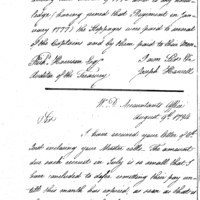 ledge/having joined that Regiment in Jan-
uary 1777) the stoppages were paid to several
of the Captains and by them paid to their Men.
Richd. Harrison Esqr. I am Sir &c
Auditor of the Treasury Joseph Howell
W.D. Accountants Office
Sir August 9th 1794
I have received your letter of the
Inst. enclosing your Muster rolls. The amount
due each recruit on July is so small that I
have concluded to defer remitting their pay un-
till this month has expired, as soon as that is